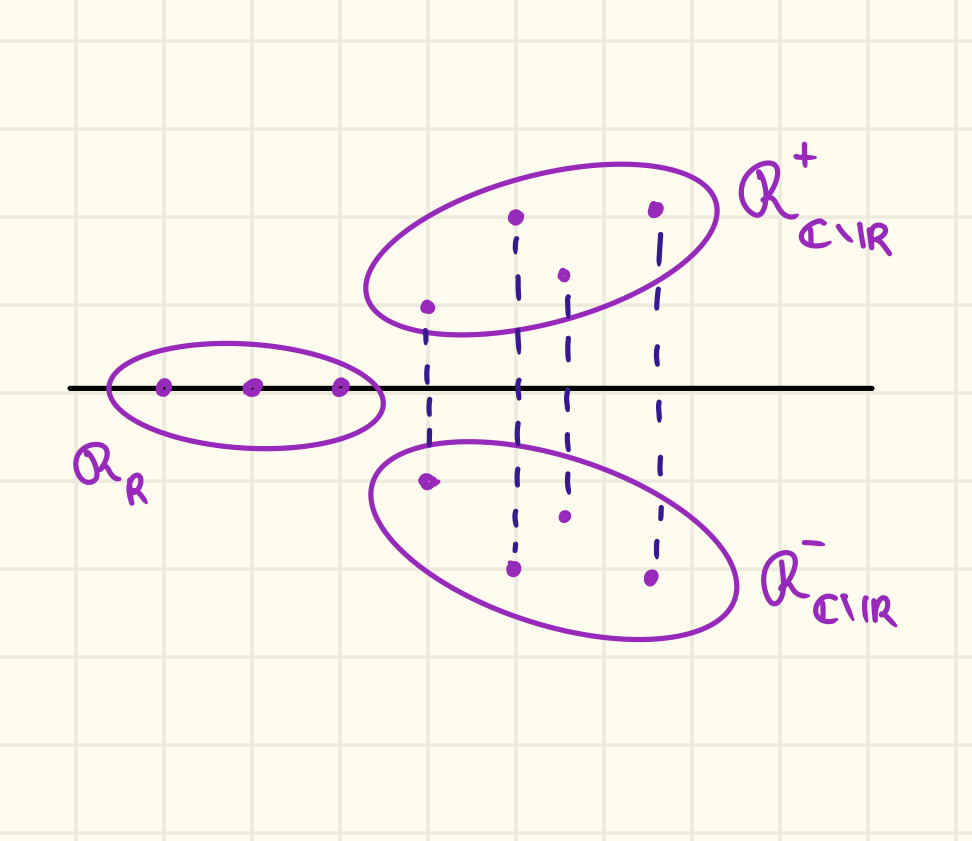 R⁺_{ℂ\ℝ}
R_ℝ
R⁻_{ℂ\ℝ}